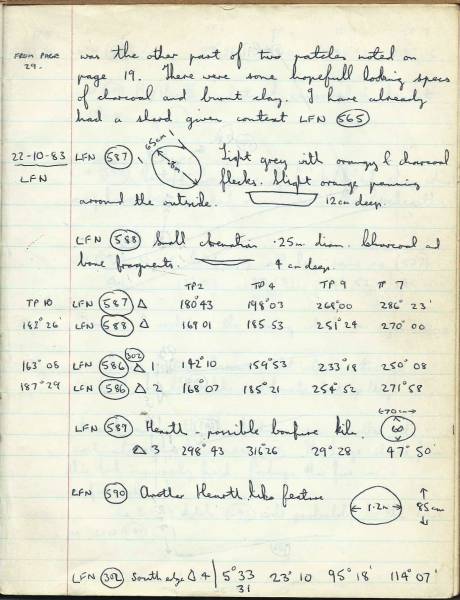 FROM PAGE 29.
was the other part of two patches noted on
page 19. There were some hopefull looking specs
of charcoal and burnt clay. I have already
had a sherd given context LFN 565
22-10-83
LFN
LFN 587 65cm Light grey with orangy & charcoal
flecks. Slight orange
around the outside. 12cm deep.
LFN 588 Small .25m diam. Charcoal and
bone fragments. 4 cm deep.
TP2 TP 4 TP 9 TP 7
TP 10 LFN 587 △ 180°43 198°03 268°00 286°23'
182°26' LFN 588 △ 168°01 185°53 251°24 270°00
302
163°08 LFN 586 △ 1 142°10 159°53 233°18 250°08
187°29 LFN 586 △ 2 168°07 185°21 254°52 271°58
LFN 589 Hearth - possible bonfire kiln. 70cm 60
△ 3 298°43 316°26 29°28 47°50'
LFN 590 Another Hearth like feature 1.2m 85cm
LFN 302 South edge △ 4 5°33 23°10 95°18' 114°07'
31